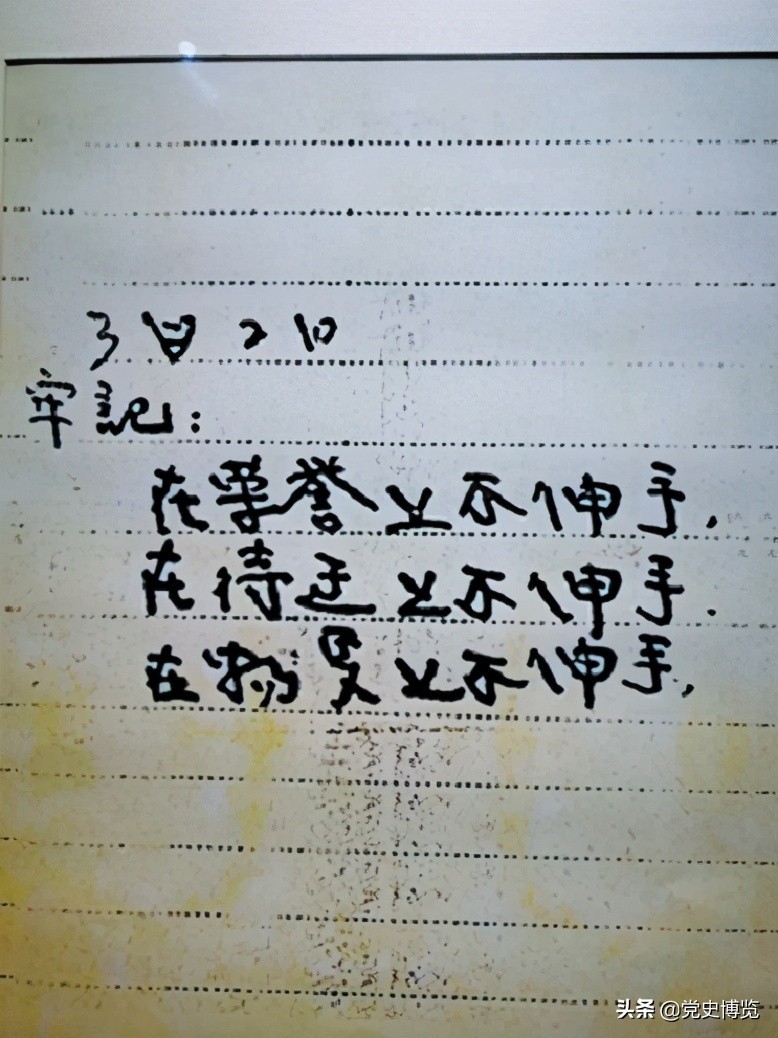 3月2日
牢記:
在荣誉上不伸手,
在待迂上不伸手.
在物质上不伸手,
头条 @党史博览